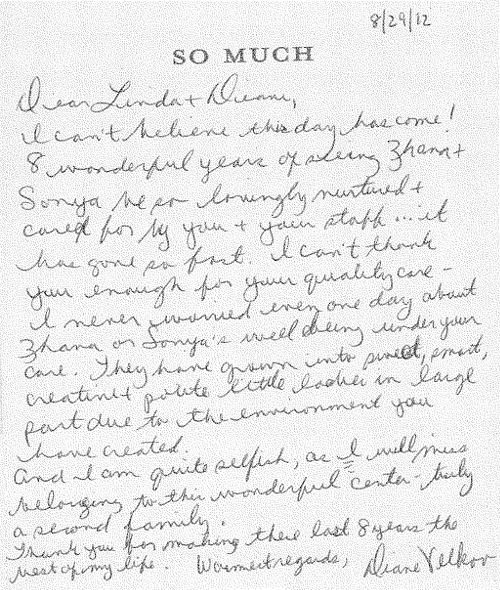 8/29/12
SO MUCH
Dear Linda + Diane,
I can't believe this day has come!
8 wonderful years of seeing Zhana +
Sonya be so lovingly nurtured +
cared for by you + your staff ... it
has gone so fast. I can't thank
you enough for your quality care -
I never worried even one day about
Zhana or Sonya's well being under your
care. They have grown into sweet, smart,
creative + polite little ladies in large
part due to the environment you
have created.
And I am quite selfish, as I will miss
belonging to this wonderful center - truly
a second family.
Thank you for making these last 8 years the
best of my life. Warmest regards, Diane Velkov